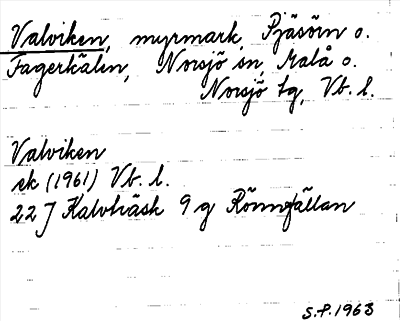 Valviken, myrmark, Pjäsörn o.
Fagerkälen, Norsjö sn, Malå o.
Norsjö tg, Vb. l.
Valviken
ek (1961) Vb. l.
22 J Kalvträsk 9 g Rönnfällan
S.P. 1963